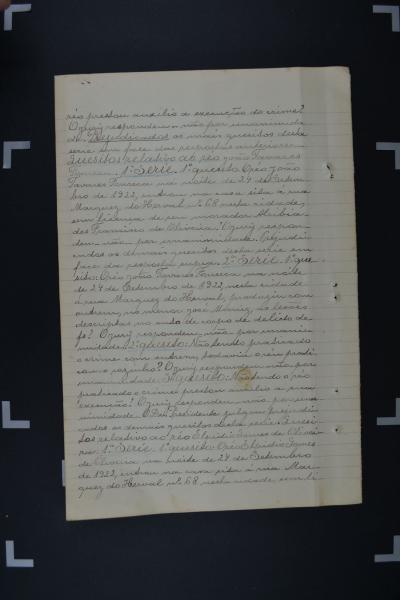 réo prestou auxilio a execução do crime?
O jury respondeu: não por unanimida-
de. Prejudicados os mais quesitos desta
serie em face das respostas anteriores.
Quesitos relativo ao réo João Tavares
Fonseca. 1ª Serie. 1º quesito: O réo João
Tavares Fonseca na noite de 24 de Setem-
bro de 1922, entrou na casa sita á rua
Marquez do Herval nº 68 nesta cidade,
sem licença de seu morador Alcibia-
des Francisco de Oliveira? O jury respon-
deu: não por unanimidade. Prejudi-
cados os demais quesitos desta serie em
face da resposta supra. 2ª Serie. 1º que-
sito: O réo João Tavares Fonseca na noite
de 24 de Setembro de 1922, nesta cidade
á rua Marquez do Herval, produziu com
outrem, no menor José Muniz, as lesões
descriptas no auto de corpo de delicto de
fs? O jury respondeu: não por unani-
midade. 2º quesito: Não tendo praticado
o crime com outrem, todavia o réo prati-
cou-o sozinho? O jury respondeu: não por
unanimidade. 3º quesito: Não tendo o réo
praticado o crime prestou auxilio a sua
execução? O jury respondeu: não por una-
nimidade. O Dr. Presidente julgou prejudi-
cados os demais quesitos desta serie. Quesi-
tos relativo ao réo Elpidio Gomes de Olivei-
ra. 1ª Serie. 1º quesito: O réo Elpidio Gomes
de Oliveira na noite de 24 de Setembro
de 1922, entrou na casa sita á rua Mar-
quez do Herval nº 68 nesta cidade, sem li-